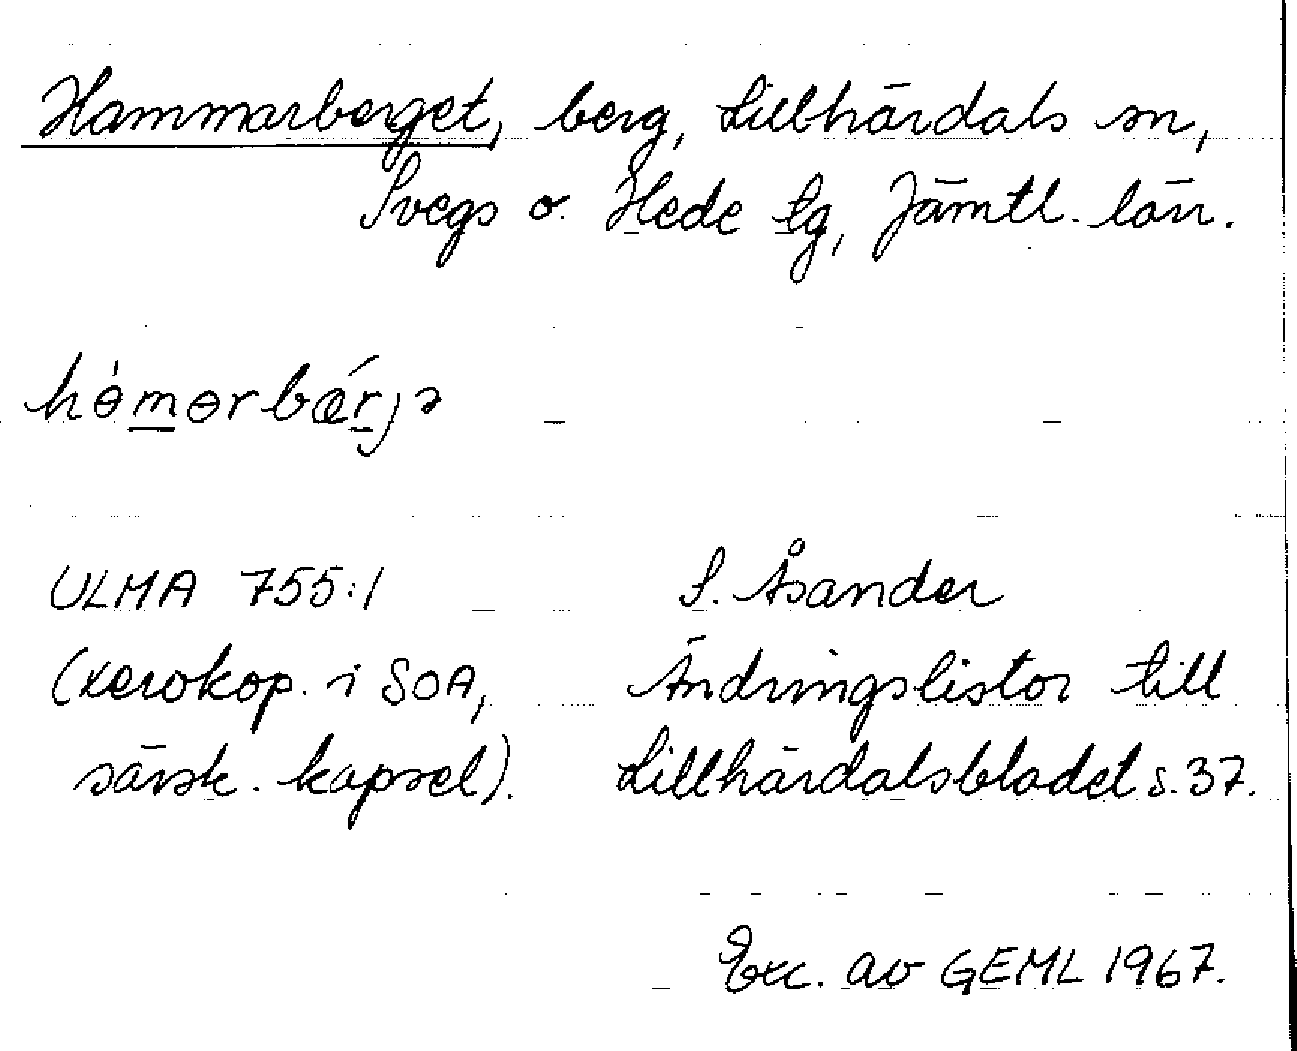 Hammarberget, berg, Lillhärdals sn,
Svegs o. Hede tg, Jämtl. län.
hɵ̀mɵrbǽrjə
ULMA 755:1
(xerokop. i SOA,
särsk. kapsel).
S. Åsander
Ändringslistor till
Lillhärdalsbladet s. 37.
Exc. av GEML 1967.